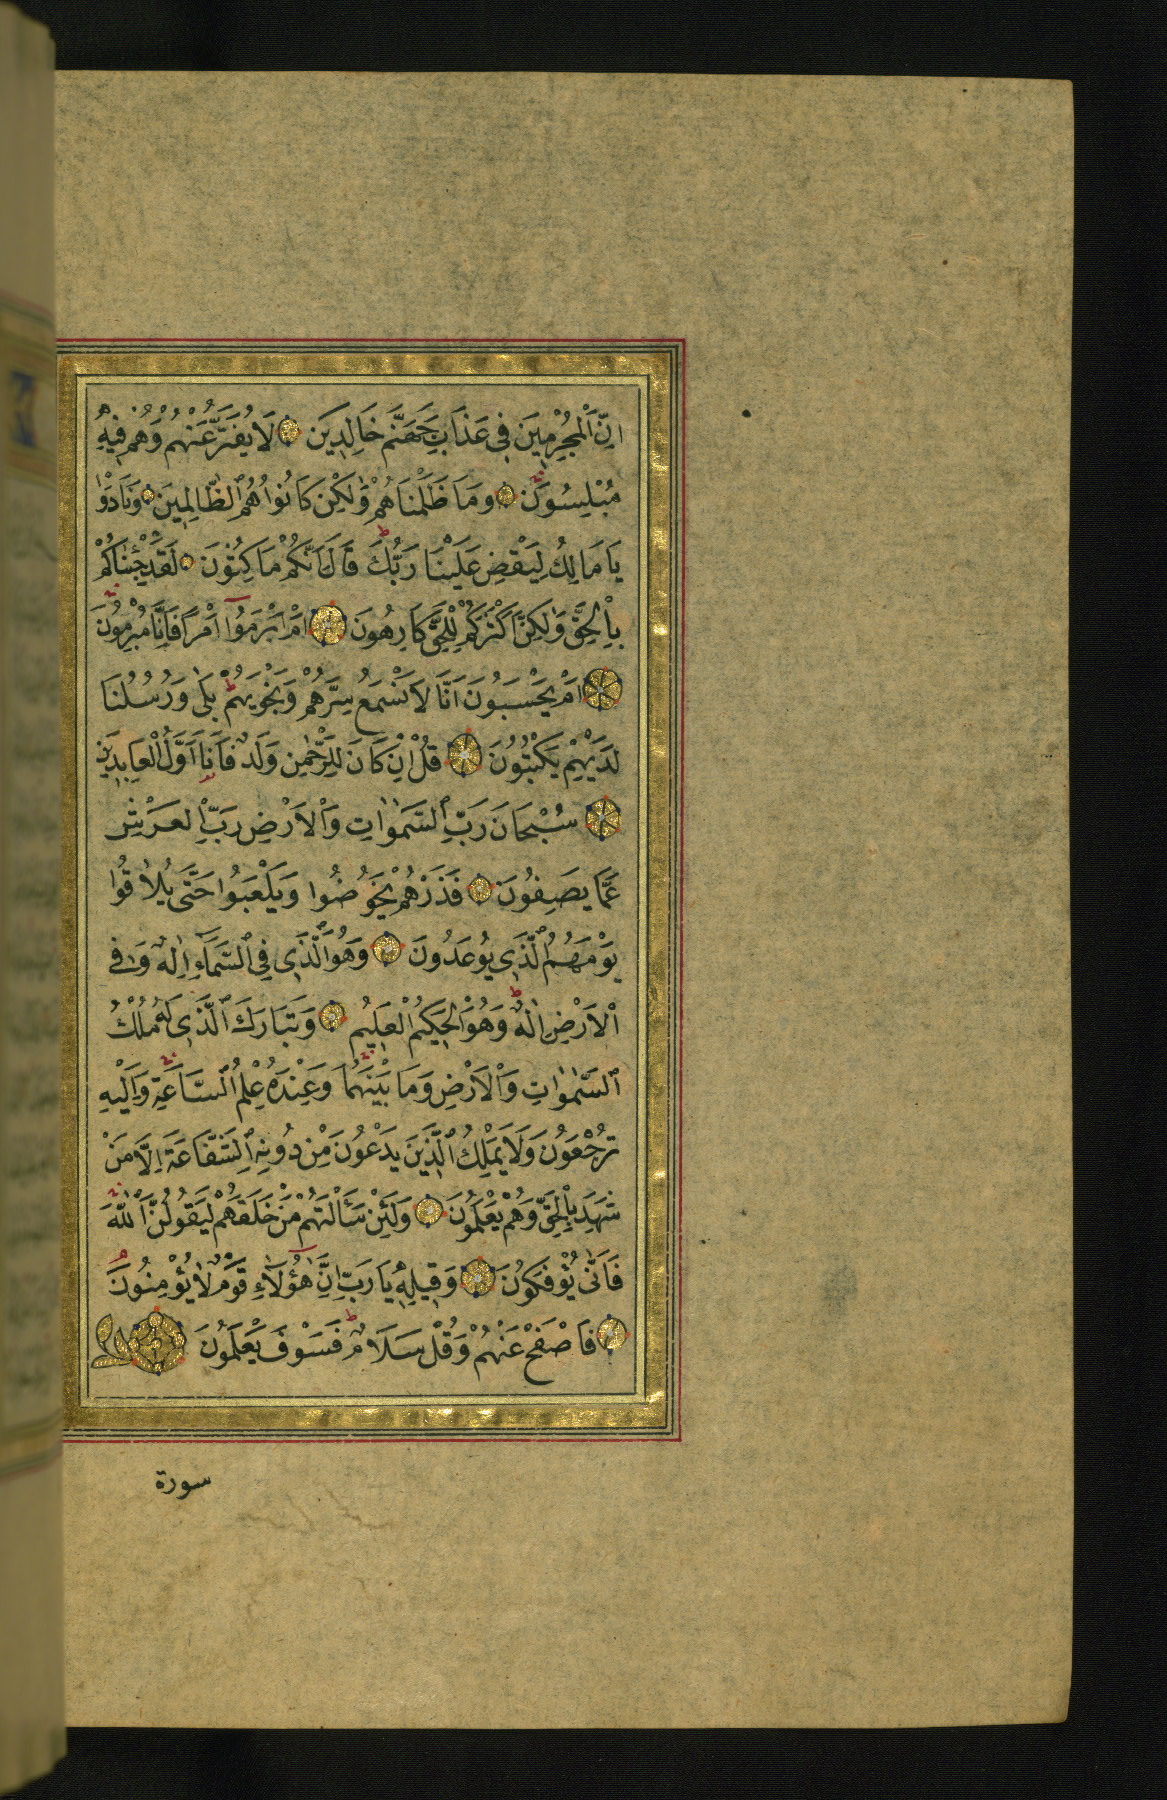 اِنَّ الْمُجْرِمِينَ فِي عَذَابِ جَهَنَّمَ خَالِدِينَ لَا يُفَتَّرُ عَنْهُمْ وَهُمْ فِيهِ
مُبْلِسُونَ وَمَا ظَلَمْنَاهُمْ وَلٰكِنْ كَانُوا هُمُ الظَّالِمِينَ وَنَادَوْا
يَا مَالِكُ لِيَقْضِ عَلَيْنَا رَبُّكَ قَالَ اِنَّكُمْ مَاكِثُونَ لَقَدْ جِئْنَاكُمْ
بِالْحَقِّ وَلٰكِنَّ اَكْثَرَكُمْ لِلْحَقِّ كَارِهُونَ اَمْ اَبْرَمُوا اَمْرًا فَاِنَّا مُبْرِمُونَ
اَمْ يَحْسَبُونَ اَنَّا لَا نَسْمَعُ سِرَّهُمْ وَنَجْوٰيهُمْ بَلٰى وَرُسُلُنَا
لَدَيْهِمْ يَكْتُبُونَ قُلْ اِنْ كَانَ لِلرَّحْمٰنِ وَلَدٌ فَاَنَا اَوَّلُ الْعَابِدِينَ
سُبْحَانَ رَبِّ السَّمٰوَاتِ وَالْاَرْضِ رَبِّ الْعَرْشِ
عَمَّا يَصِفُونَ فَذَرْهُمْ يَخُوضُوا وَيَلْعَبُوا حَتّٰى يُلَاقُوا
يَوْمَهُمُ الَّذِي يُوعَدُونَ وَهُوَ الَّذِي فِي السَّمَاءِ اِلٰهٌ وَفِي
الْاَرْضِ اِلٰهٌ وَهُوَ الْحَكِيمُ الْعَلِيمُ وَتَبَارَكَ الَّذِي لَهُ مُلْكُ
السَّمٰوَاتِ وَالْاَرْضِ وَمَا بَيْنَهُمَا وَعِنْدَهُ عِلْمُ السَّاعَةِ وَاِلَيْهِ
تُرْجَعُونَ وَلَا يَمْلِكُ الَّذِينَ يَدْعُونَ مِنْ دُونِهِ الشَّفَاعَةَ اِلَّا مَنْ
شَهِدَ بِالْحَقِّ وَهُمْ يَعْلَمُونَ وَلَئِنْ سَاَلْتَهُمْ مَنْ خَلَقَهُمْ لَيَقُولُنَّ اللّٰهُ
فَاَنّٰى يُؤْفَكُونَ وَقِيلِهِ يَا رَبِّ اِنَّ هٰؤُلَاءِ قَوْمٌ لَا يُؤْمِنُونَ
فَاصْفَحْ عَنْهُمْ وَقُلْ سَلَامٌ فَسَوْفَ يَعْلَمُونَ
سورة